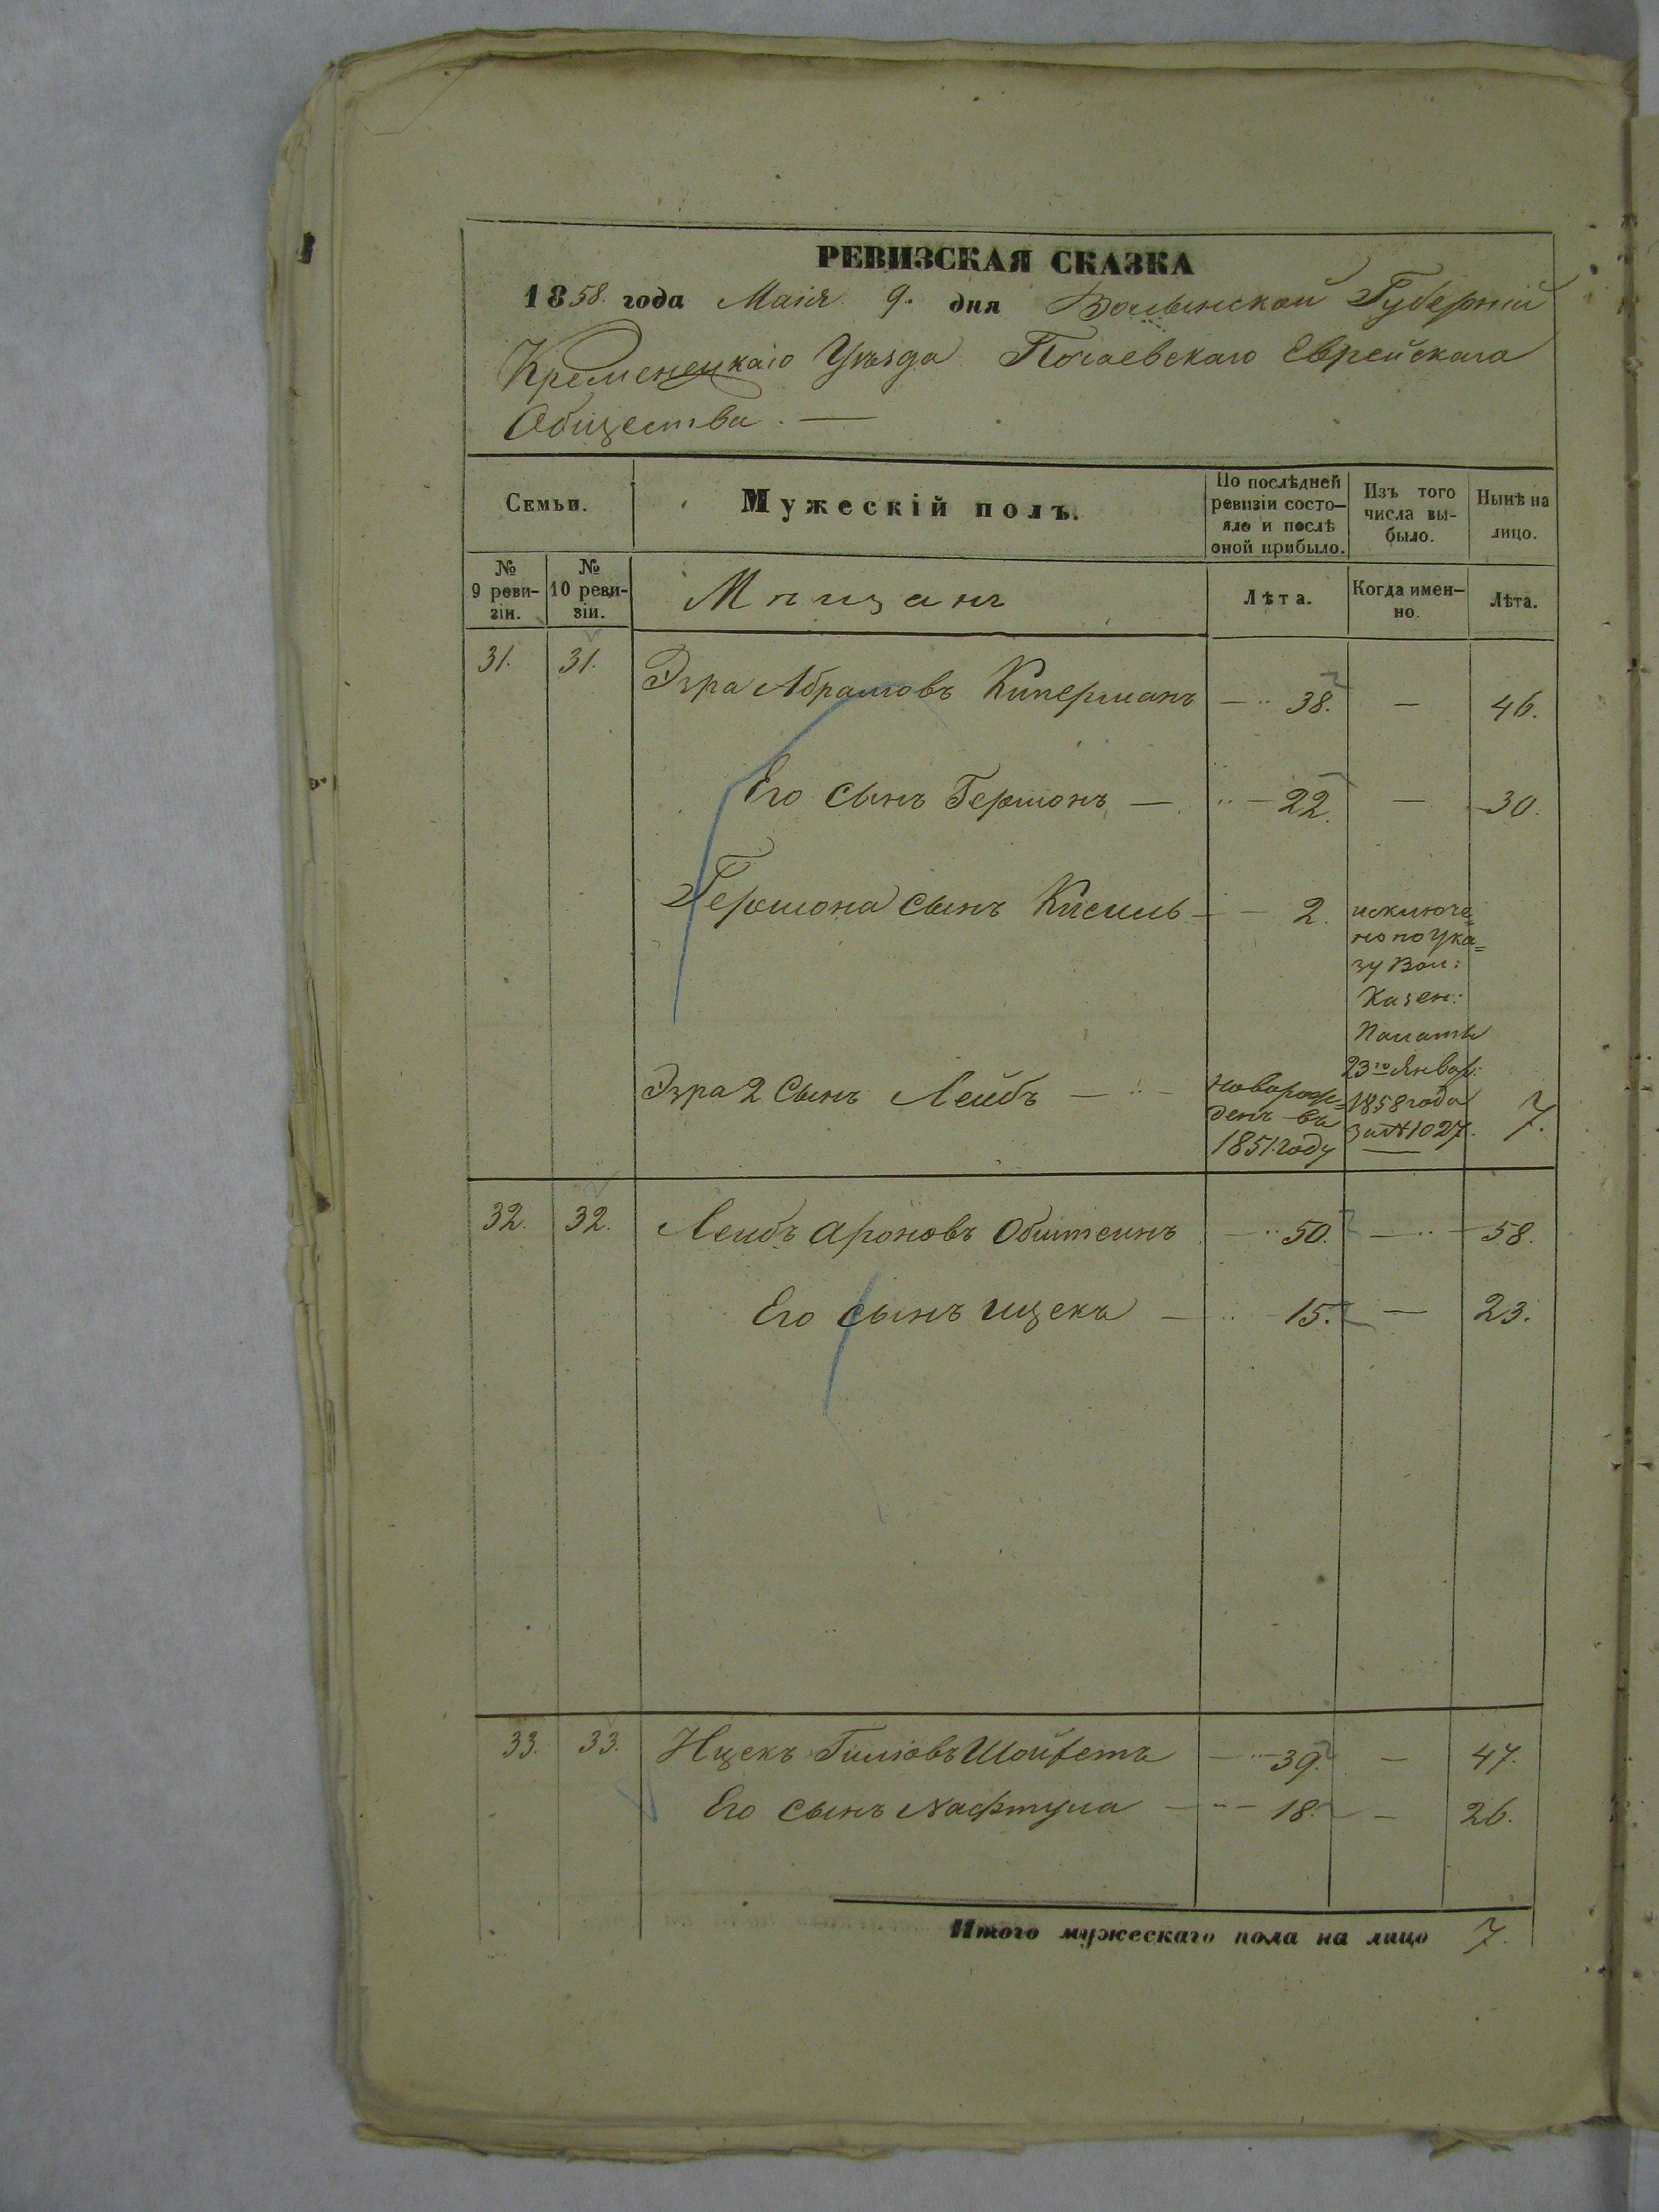 РЕВИЗСКАЯ СКАЗКА
1858. года Маія 9. дня Волынской Губерніи
Кременецкаго Уѣзда Почаевскаго Еврейскаго
Общества. —
Семьи.
Мужескій полъ.
По послѣдней ревизіи состо-
яло и послѣ оной прибыло.
Изъ того числа вы-
было.
Нынѣ на лицо.
№ 9 реви-
зіи.
№ 10 реви-
зіи.
Мѣщанъ
Лѣта.
Когда имен-
но.
Лѣта.
31. 31. Эзра Абрамовъ Киперманъ — 38. — 46.
Его сынъ Гершонъ — 22. — 30.
Гершона сынъ Кисиль — 2. исключе=
но по Ука=
зу Вол:
Казен:
Палаты
23го Январ:
1858 года
за № 1027.
Эзра 2 Сынъ Лейбъ — новорож=
денъ въ
1851 году
7.
32. 32. Лейбъ Ароновъ Обштеинъ — 50. — 58.
Его сынъ Ицекъ — 15. — 23.
33. 33. Ицекъ Гилювъ Шойфетъ — 39. — 47.
Его сынъ Нафтула — 18. — 26.
Итого мужескаго пола на лицо 7.